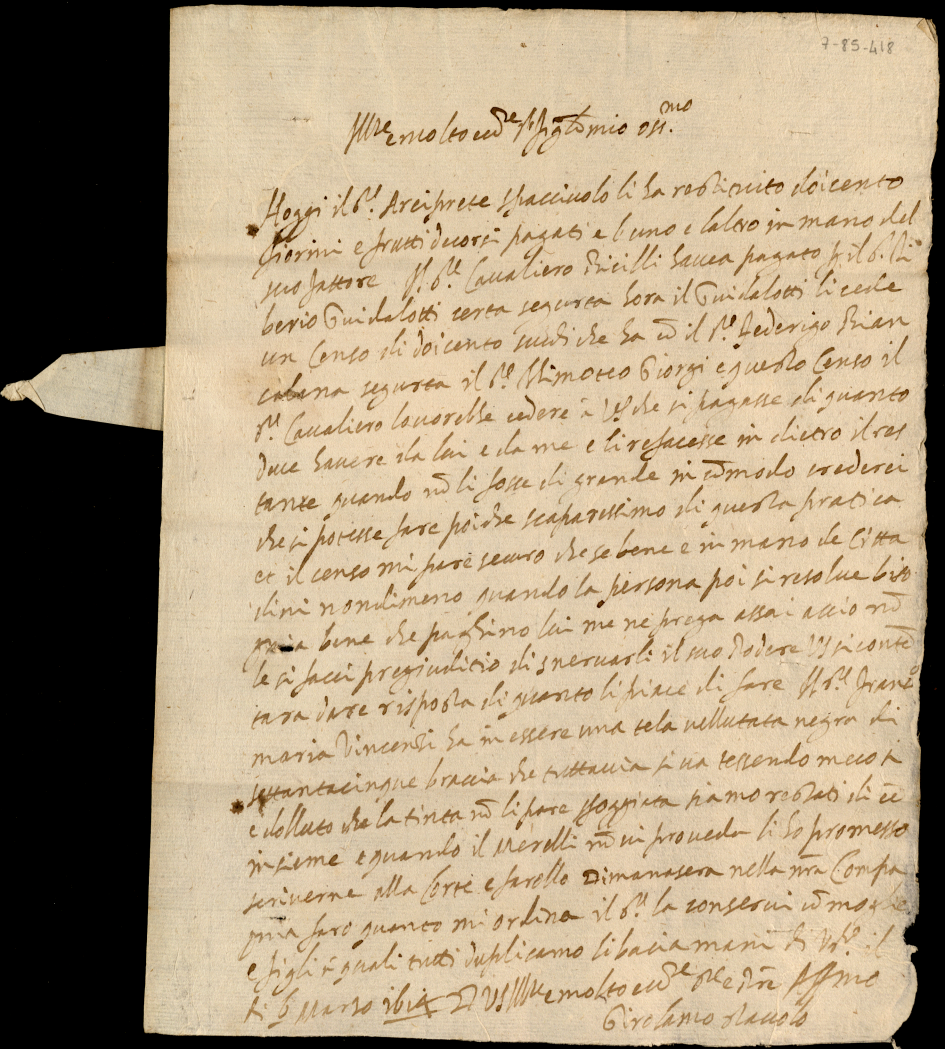 7-85-418
Ill.re e molto ecc.te S.r mio oss.mo
Hoggi il S.r Arciprete Spacciuolo li ha restituito doicento
fiorini e frutti decorsi pagati e l'uno e l'altro in mano del
suo fattore Il S.r Cavaliero havea pagato p il S. Ti
berio Guidalotti certa segurta hora il Guidalotti li cede
un Censo di doicento scudi che ha cō il S.r Federigo Bian
calana segurta il S.r Thimoteo Giorgi e questo Censo il
S.r Cavaliero lo vorebbe cedere à V.S. che si pagasse di quanto
deve havere da lui e da me e li refacesse in dietro il res
tante quando nō li fosse di grande in cōmodo crederei
che si potesse fare poiche scaparissimo di questa pratica
et il censo mi pare securo che se bene e in mano de Citta
dini nondimeno quando la persona poi si resolve biso
gnia bene che paghino lui me ne prega assai accio nō
le si facci pregiuditio di snervarli il suo Podere VS si contē
tara dare risposta di quanto li piace di fare Il S.r Franc.o
maria Vincenzi ha in essere una tela vellutata negra di
settantacinque braccia che tuttavia si va tessendo
e che la tinta nō li pare sfoggiata siamo restati di
insieme e quando il Merelli nō vi proveda li ho promesso
scriverne alla Corte e farollo Dimanasera nella nr̄a Compa
gnia farò quanto mi ordina il S.r la conservi cō moglie
e figli à quali tutti duplicamo li bacia mani Di V.S. il
di 6 Marzo Di VS Ill.re e molto ecc.te Aff.mo
Girolamo